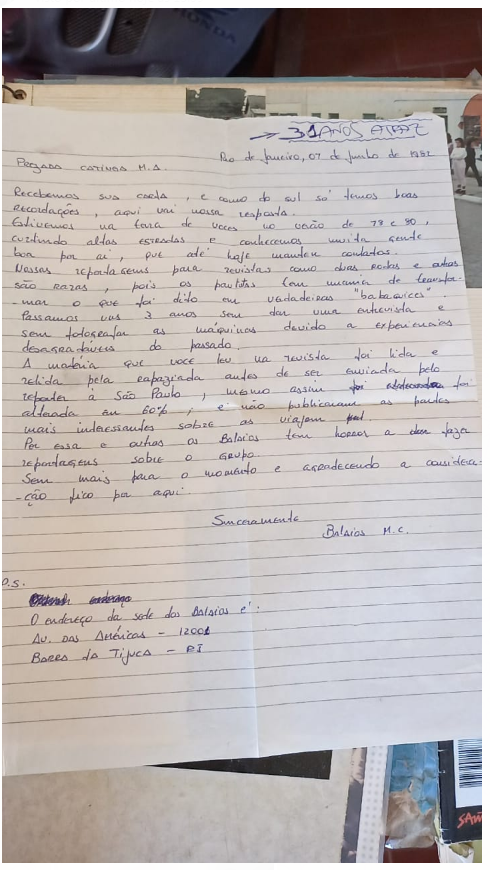 HONDA
→ 31 ANOS ATRAZ
Prezado CATINGA M.A.
Rio de Janeiro, 07 de Junho de 1982
Recebemos sua carta, e como do sul só temos boas
recordações, aqui vai nossa resposta.
Estivemos na terra de voces no verão de 79 e 80,
curtindo altas ESTRADAS e conhecemos muita gente
boa por ai, que até hoje mantem contatos.
Nossas reportagens para revistas como duas Rodas e outras
são RARAS, pois os paulistas tem mania de transfor-
-mar o que foi dito em verdadeiras "babaquices".
Passamos uns 3 anos sem dar uma entrevista e
sem fotografar as máquinas devido a experiencias
desagradáveis do passado.
A matéria que voce leu na revista foi lida e
relida pela rapaziada antes de ser enviada pelo
reporter à São Paulo, mesmo assim foi
alterada em 60%, e não publicaram as partes
mais interessantes sobre as viajem
Por essa e outras os Balaios tem horror a fazer
reportagens sobre o GRUPO.
Sem mais para o momento e agradecendo a considera-
-ção fico por aqui.
Sinceramente
Balaios M.C.
P.S.
O endereço da sede dos Balaios é:
Av. DAS Américas - 1200
BARRA da TijucA - RJ